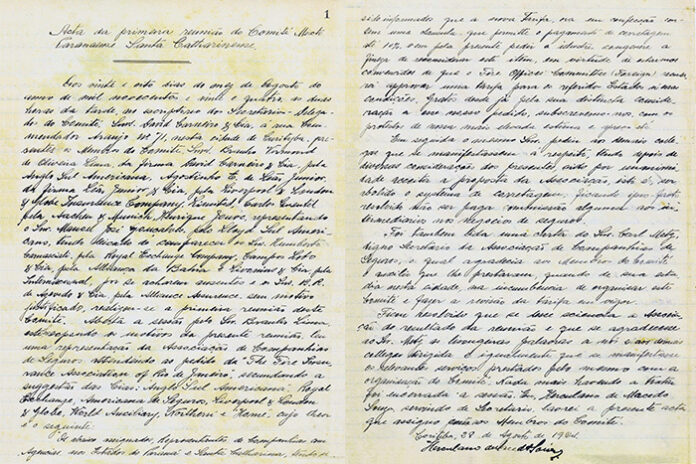 1
Acta da primeira reunião do Comité Mixto
Paranaense Santa Catharinense.
Aos vinte e oito dias do mez de Agosto do
anno de mil novecentos e vinte e quatro, ás duas
horas da tarde no escriptorio do Secretario-Delega-
do do Comité, Snrs. David Carneiro & Cia, á rua Com-
mendador Araujo Nº 71, nesta cidade de Curityba, pre-
sentes os Membros do Comité Snrs.
de Oliveira Lima, da firma David Carneiro & Cia, pela
Anglo Sul Americana, Agostinho E. de Leão Junior,
da firma Leão Junior & Cia, pela Liverpool & London
& Globe Insurance Company, Limited, Carlos
pela Aachen & Munich, Henrique representando
o Snr. Manoel José pelo Lloyd Sul Ameri-
cano, tendo deixado de comparecer os Snrs. Humberto
pela Royal Exchange Company, Campos Lobo
& Cia, pela Alliança da Bahia e & Cia, pela
Internacional, por se acharem ausentes e os Snrs. B. R.
de Azevedo & Cia, pela Alliance Assurance, sem motivo
justificado, realizou-se a primeira reunião deste
Comité. Aberta a sessão pelo Snr. Lima,
os motivos da presente reunião, leu
uma representação da Associação de Companhias
de Seguros, attendendo ao pedido da "The Fire Insu-
rance Association of Rio de Janeiro", secundando a
suggestão das Cias: Anglo Sul Americana, Royal
Exchange, Americana de Seguros, Liverpool & London
& Globe, World Auxiliary, Northern e "Home", cujo theor
é o seguinte:
Os abaixo assignados, Representantes de Companhias ou
Agencias, nos Estados do Paraná e Santa Catharina, tendo
sido informados que a nova Tarifa, ora em confecção con-
tem uma clausula que permitte o pagamento de corretagem
de 10%, vem pela presente pedir o obsequio
fineza de reconsiderar este item, em virtude de estarmos
convencidos de que o Fire Offices Committee (Foreign)
rá approvar uma tarifa para os referidos Estados n'essas
condições. Gratos desde já pela sua distincta conside-
ração a esse nosso pedido, subscrevemo-nos, com os
protestos de nossa mais elevada estima e apreço etc.
Em seguida o mesmo Snr. pediu aos demais colle-
gas que se manifestassem a respeito, tendo depois de
diversas considerações dos presentes, sido por unanimi-
dade acceita a proposta da Associação, isto é, ser
abolido o systema de corretagem, ficando que
não ser paga commissão alguma aos in-
termediarios nos negocios de seguros.
Foi tambem lida uma carta do Snr. Carl Metz,
digno Secretario da Associação de Companhias de
Seguros, o qual agradecia aos Membros do Comité
o auxilio que lhe prestaram, quando de sua esta-
dia nesta cidade, na incumbencia de organisar este
Comité e fazer a revisão da tarifa em vigor.
Ficou resolvido que se desse sciencia a Associa-
ção do resultado da reunião e que se agradecesse
ao Snr. Metz as lisongeiras palavras a nós e aos demais
collegas dirigida e igualmente que se manifestasse
os relevantes serviços prestados pelo mesmo com a
organisação do Comité. Nada mais havendo a tratar
foi encerrada a sessão. Eu, Herculano de Macedo
Souza, servindo de Secretario, lavrei a presente acta
que assigno com os Membros do Comité.
Corityba, 28 de Agosto de 1924.
Herculano Macedo Souza